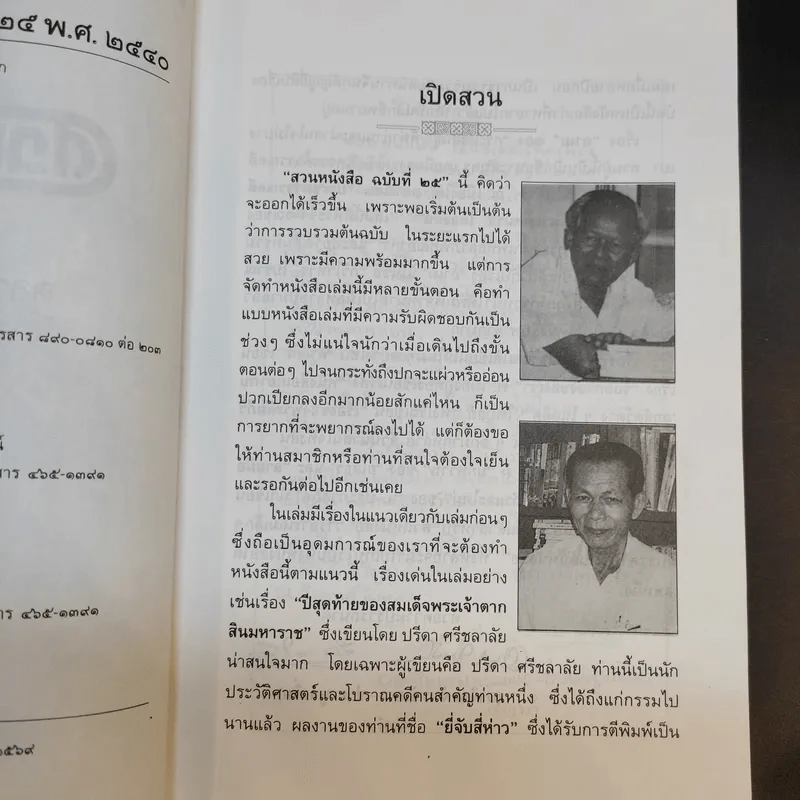 ๒๕ พ.ศ. ๒๕๔๐
รสาร ๘๙๐-๐๘๑๐ ต่อ ๒๐๓
สาร ๔๖๕-๑๓๙๑
าร ๔๖๕-๑๓๙๑
เปิดสวน
“สวนหนังสือ ฉบับที่ ๒๕” นี้ คิดว่า
จะออกได้เร็วขึ้น เพราะพอเริ่มต้นเป็นต้น
ว่าการรวบรวมต้นฉบับ ในระยะแรกไปได้
สวย เพราะมีความพร้อมมากขึ้น แต่การ
จัดทำหนังสือเล่มนี้มีหลายขั้นตอน คือทำ
แบบหนังสือเล่มที่มีความรับผิดชอบกันเป็น
ช่วงๆ ซึ่งไม่แน่ใจนักว่าเมื่อเดินไปถึงขั้น
ตอนต่อๆ ไปจนกระทั่งถึงปกจะแผ่วหรืออ่อน
ปวกเปียกลงอีกมากน้อยสักแค่ไหน ก็เป็น
การยากที่จะพยากรณ์ลงไปได้ แต่ก็ต้องขอ
ให้ท่านสมาชิกหรือท่านที่สนใจต้องใจเย็น
และรอกันต่อไปอีกเช่นเคย
ในเล่มมีเรื่องในแนวเดียวกับเล่มก่อนๆ
ซึ่งถือเป็นอุดมการณ์ของเราที่จะต้องทำ
หนังสือนี้ตามแนวนี้ เรื่องเด่นในเล่มอย่าง
เช่นเรื่อง “ปีสุดท้ายของสมเด็จพระเจ้าตาก
สินมหาราช” ซึ่งเขียนโดย ปรีดา ศรีชลาลัย
น่าสนใจมาก โดยเฉพาะผู้เขียนคือ ปรีดา ศรีชลาลัย ท่านนี้เป็นนัก
ประวัติศาสตร์และโบราณคดีคนสำคัญท่านหนึ่ง ซึ่งได้ถึงแก่กรรมไป
นานแล้ว ผลงานของท่านที่ชื่อ “ยี่จับสี่ห่าว” ซึ่งได้รับการตีพิมพ์เป็น